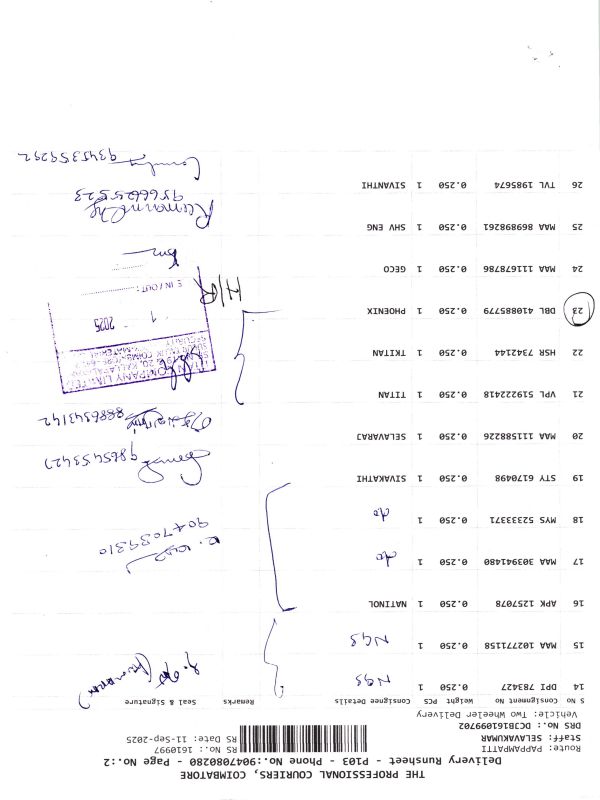 THE PROFESSIONAL COURIERS, COIMBATORE
Delivery Runsheet - P103 - Phone No.:9047080280 - Page No.:2
Route: PAPPAMPATTI
Staff: SELVAKUMAR
DRS No.: DCB161099702
Vehicle: Two Wheeler Delivery
RS No.: 1610997
RS Date: 11-Sep-2025
S No Consignment No Weight PCS Consignee Details Remarks Seal & Signature
14 DPI 783427 0.250 1 NGS
15 MAA 102771158 0.250 1 NGS
16 APK 1257078 0.250 1 NATINOL
17 MAA 303941480 0.250 1 do
18 MYS 5233371 0.250 1 do
9047059310
19 STY 6170498 0.250 1 SIVAKATHI
9865453427
20 MAA 111588226 0.250 1 SELAVARAJ
8886343142
21 VPL 519222418 0.250 1 TITAN
22 HSR 7342144 0.250 1 TKITAN
23 DBL 410885779 0.250 1 PHOENIX
H/R
COMPANY LIMITED
SECURITY
1 2025
E IN / OUT :
24 MAA 111678786 0.250 1 GECO
25 MAA 869898261 0.250 1 SHV ENG
9566625523
26 TVL 1985674 0.250 1 SIVANTHI
9345359292